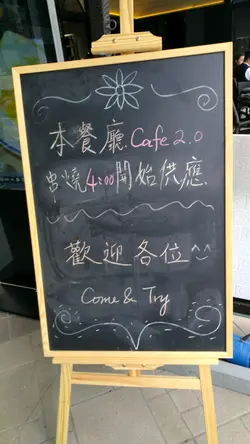 本餐廳 Cafe 2.0
串燒 4:00 開始供應
歡迎各位^^
Come & Try